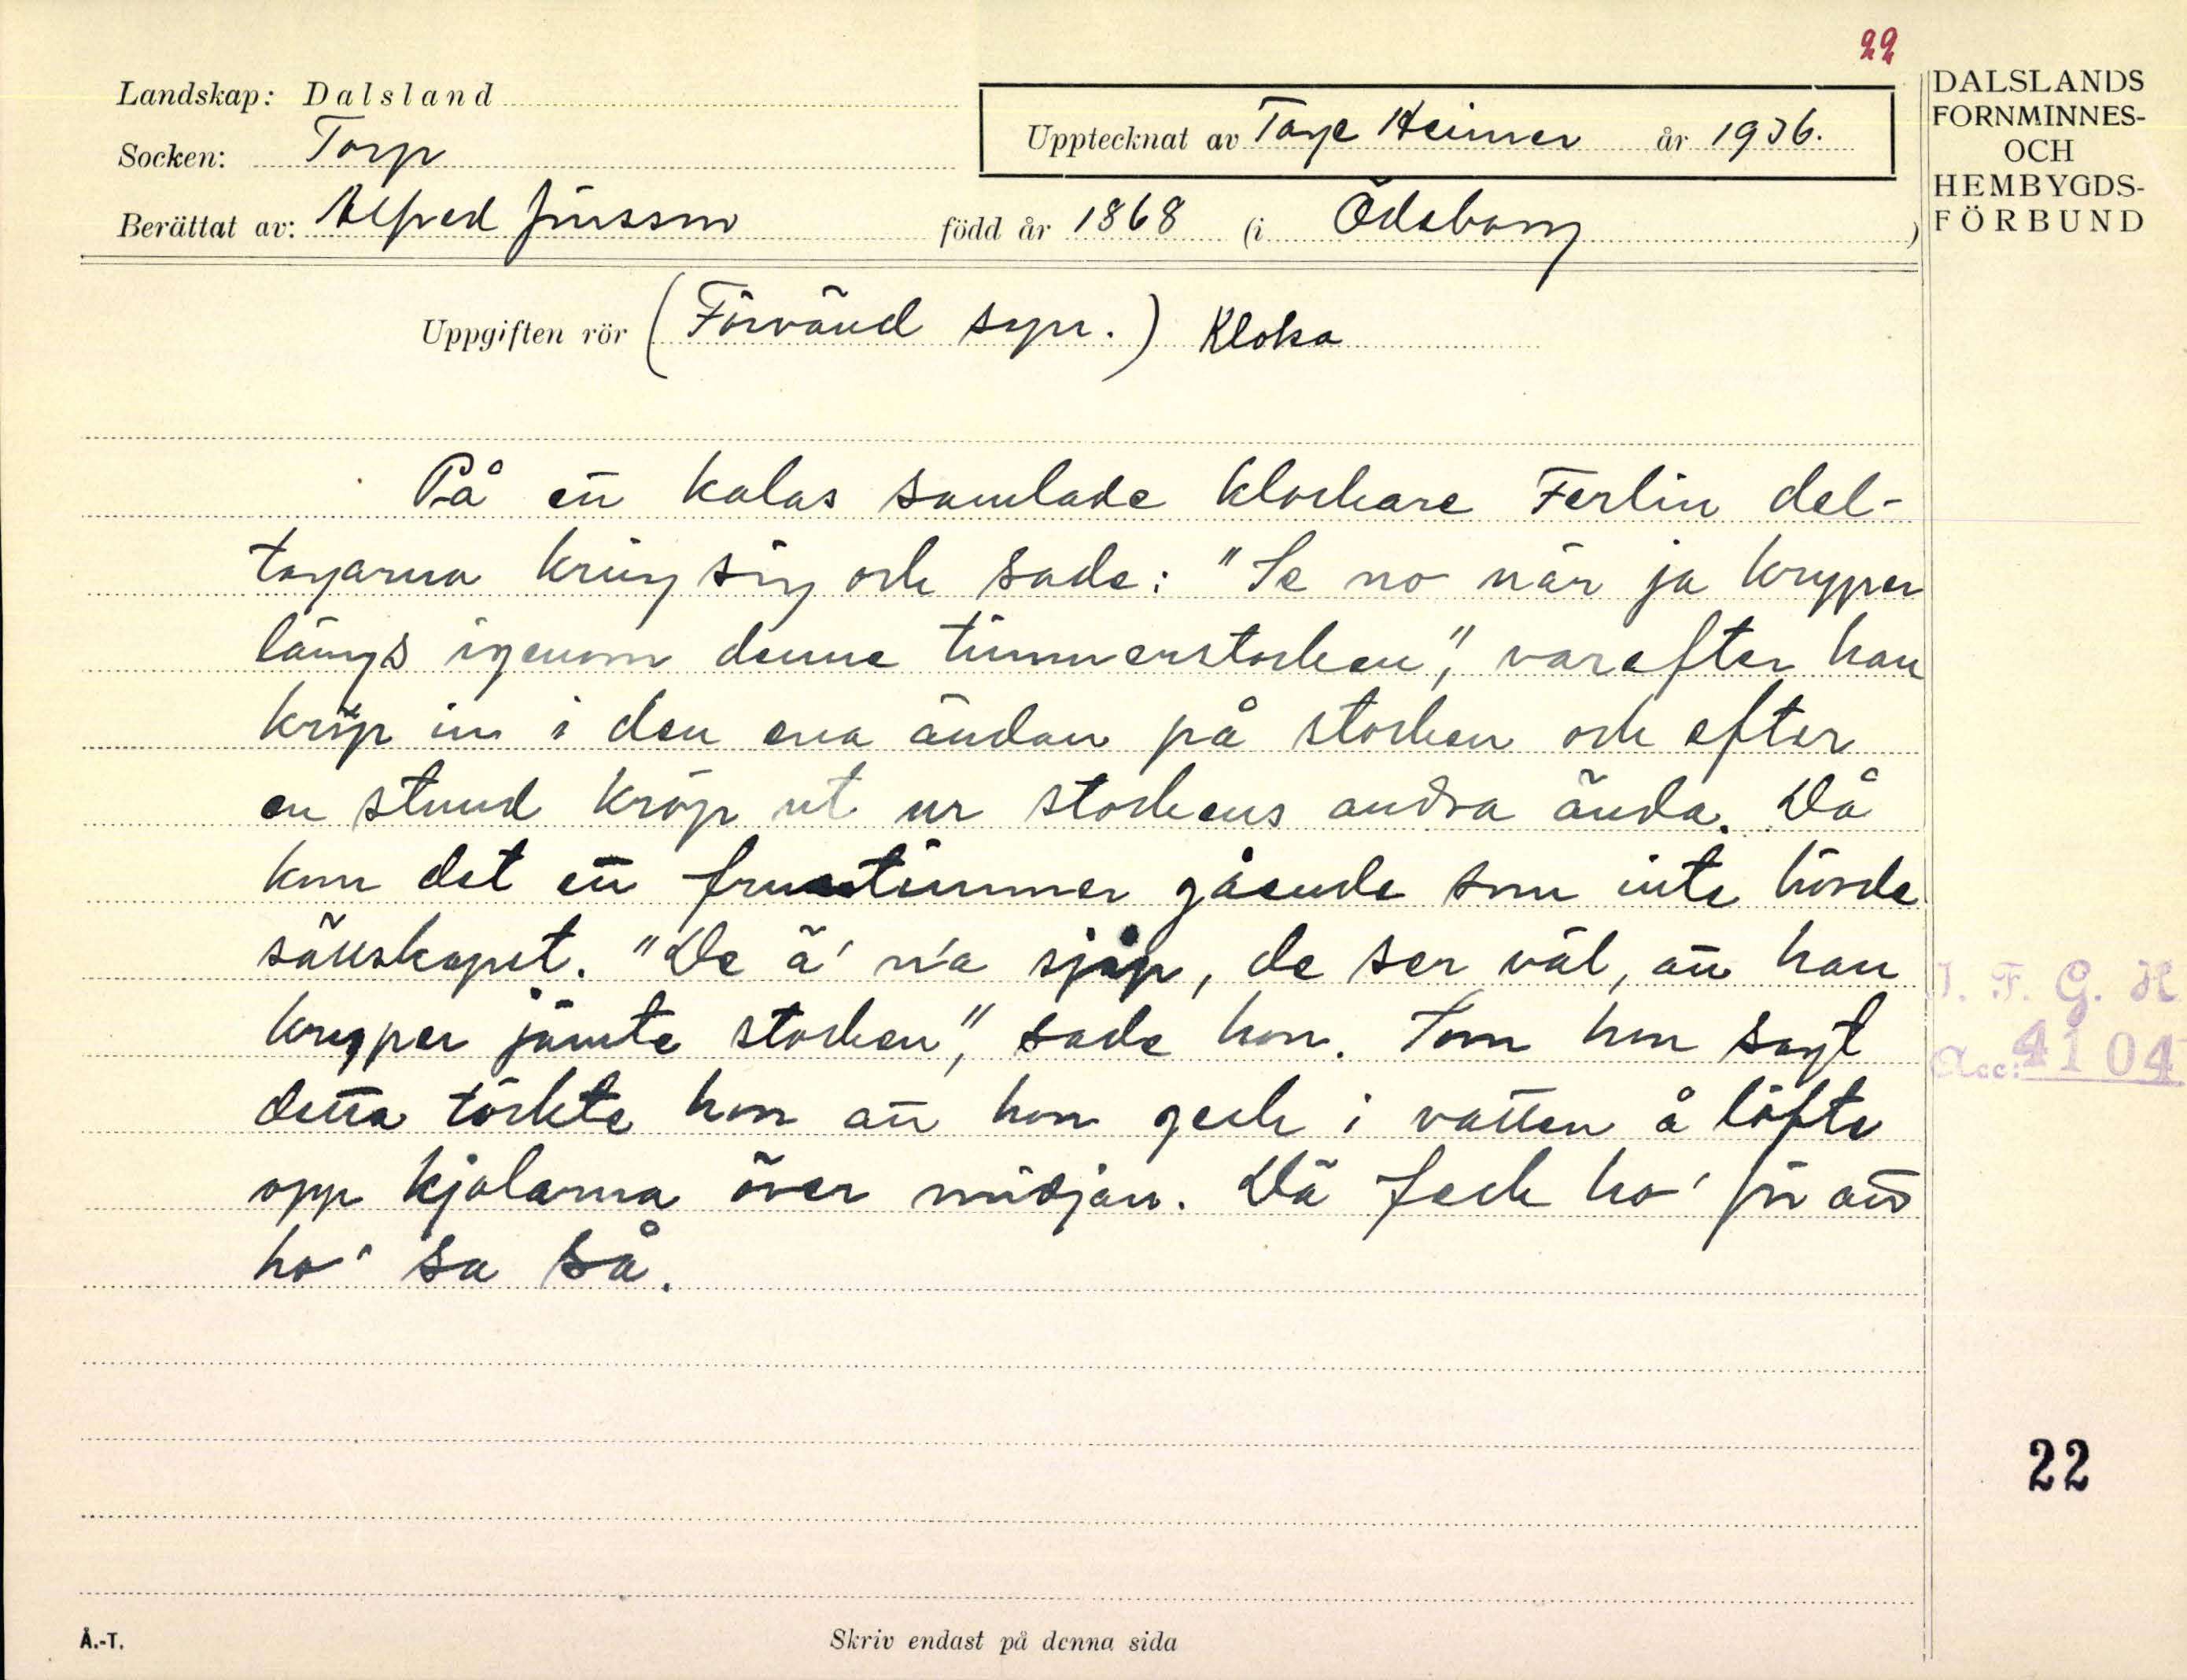 22
Landskap: Dalsland
Upptecknat av Tage Heimer år 1936.
Socken: Torp
Berättat av: Alfred Jonsson född år 1868 (i Ödeborg)
DALSLANDS
FORNMINNES-
OCH
HEMBYGDS-
FÖRBUND
Uppgiften rör (Förvänd syn.) Kloka
På ett kalas samlade klockare Ferlin del-
tagarna kring sig och sade: "Se no när ja kryper
längs igenom denne timmerstocken", varefter han
kröp in i den ena ändan på stocken och efter
en stund kröp ut ur stockens andra ända. Då
kom det ett fruntimmer gående som inte hörde
sällskapet. "De ä' n'a sjåp, de ser väl, att han
kryper jämte stocken", sade hon. Som hon sagt
detta töckte hon att hon geck i vatten å löfte
opp kjolarna över midjan. Dä feck ho' för att
ho' sa så.
I. F. G. H
Acc: 4104
22
Å.-T.
Skriv endast på denna sida